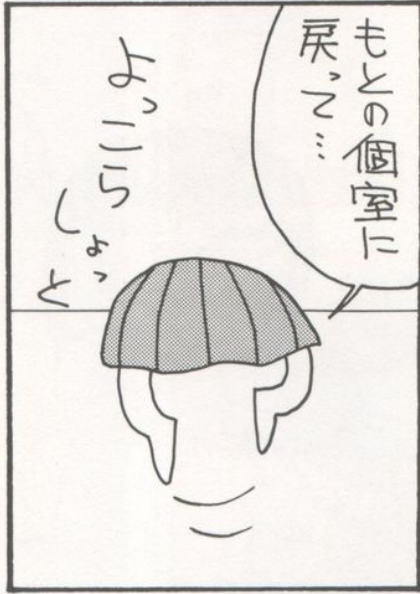 もとの個室に
戻って…
よっこら
しょっ
と